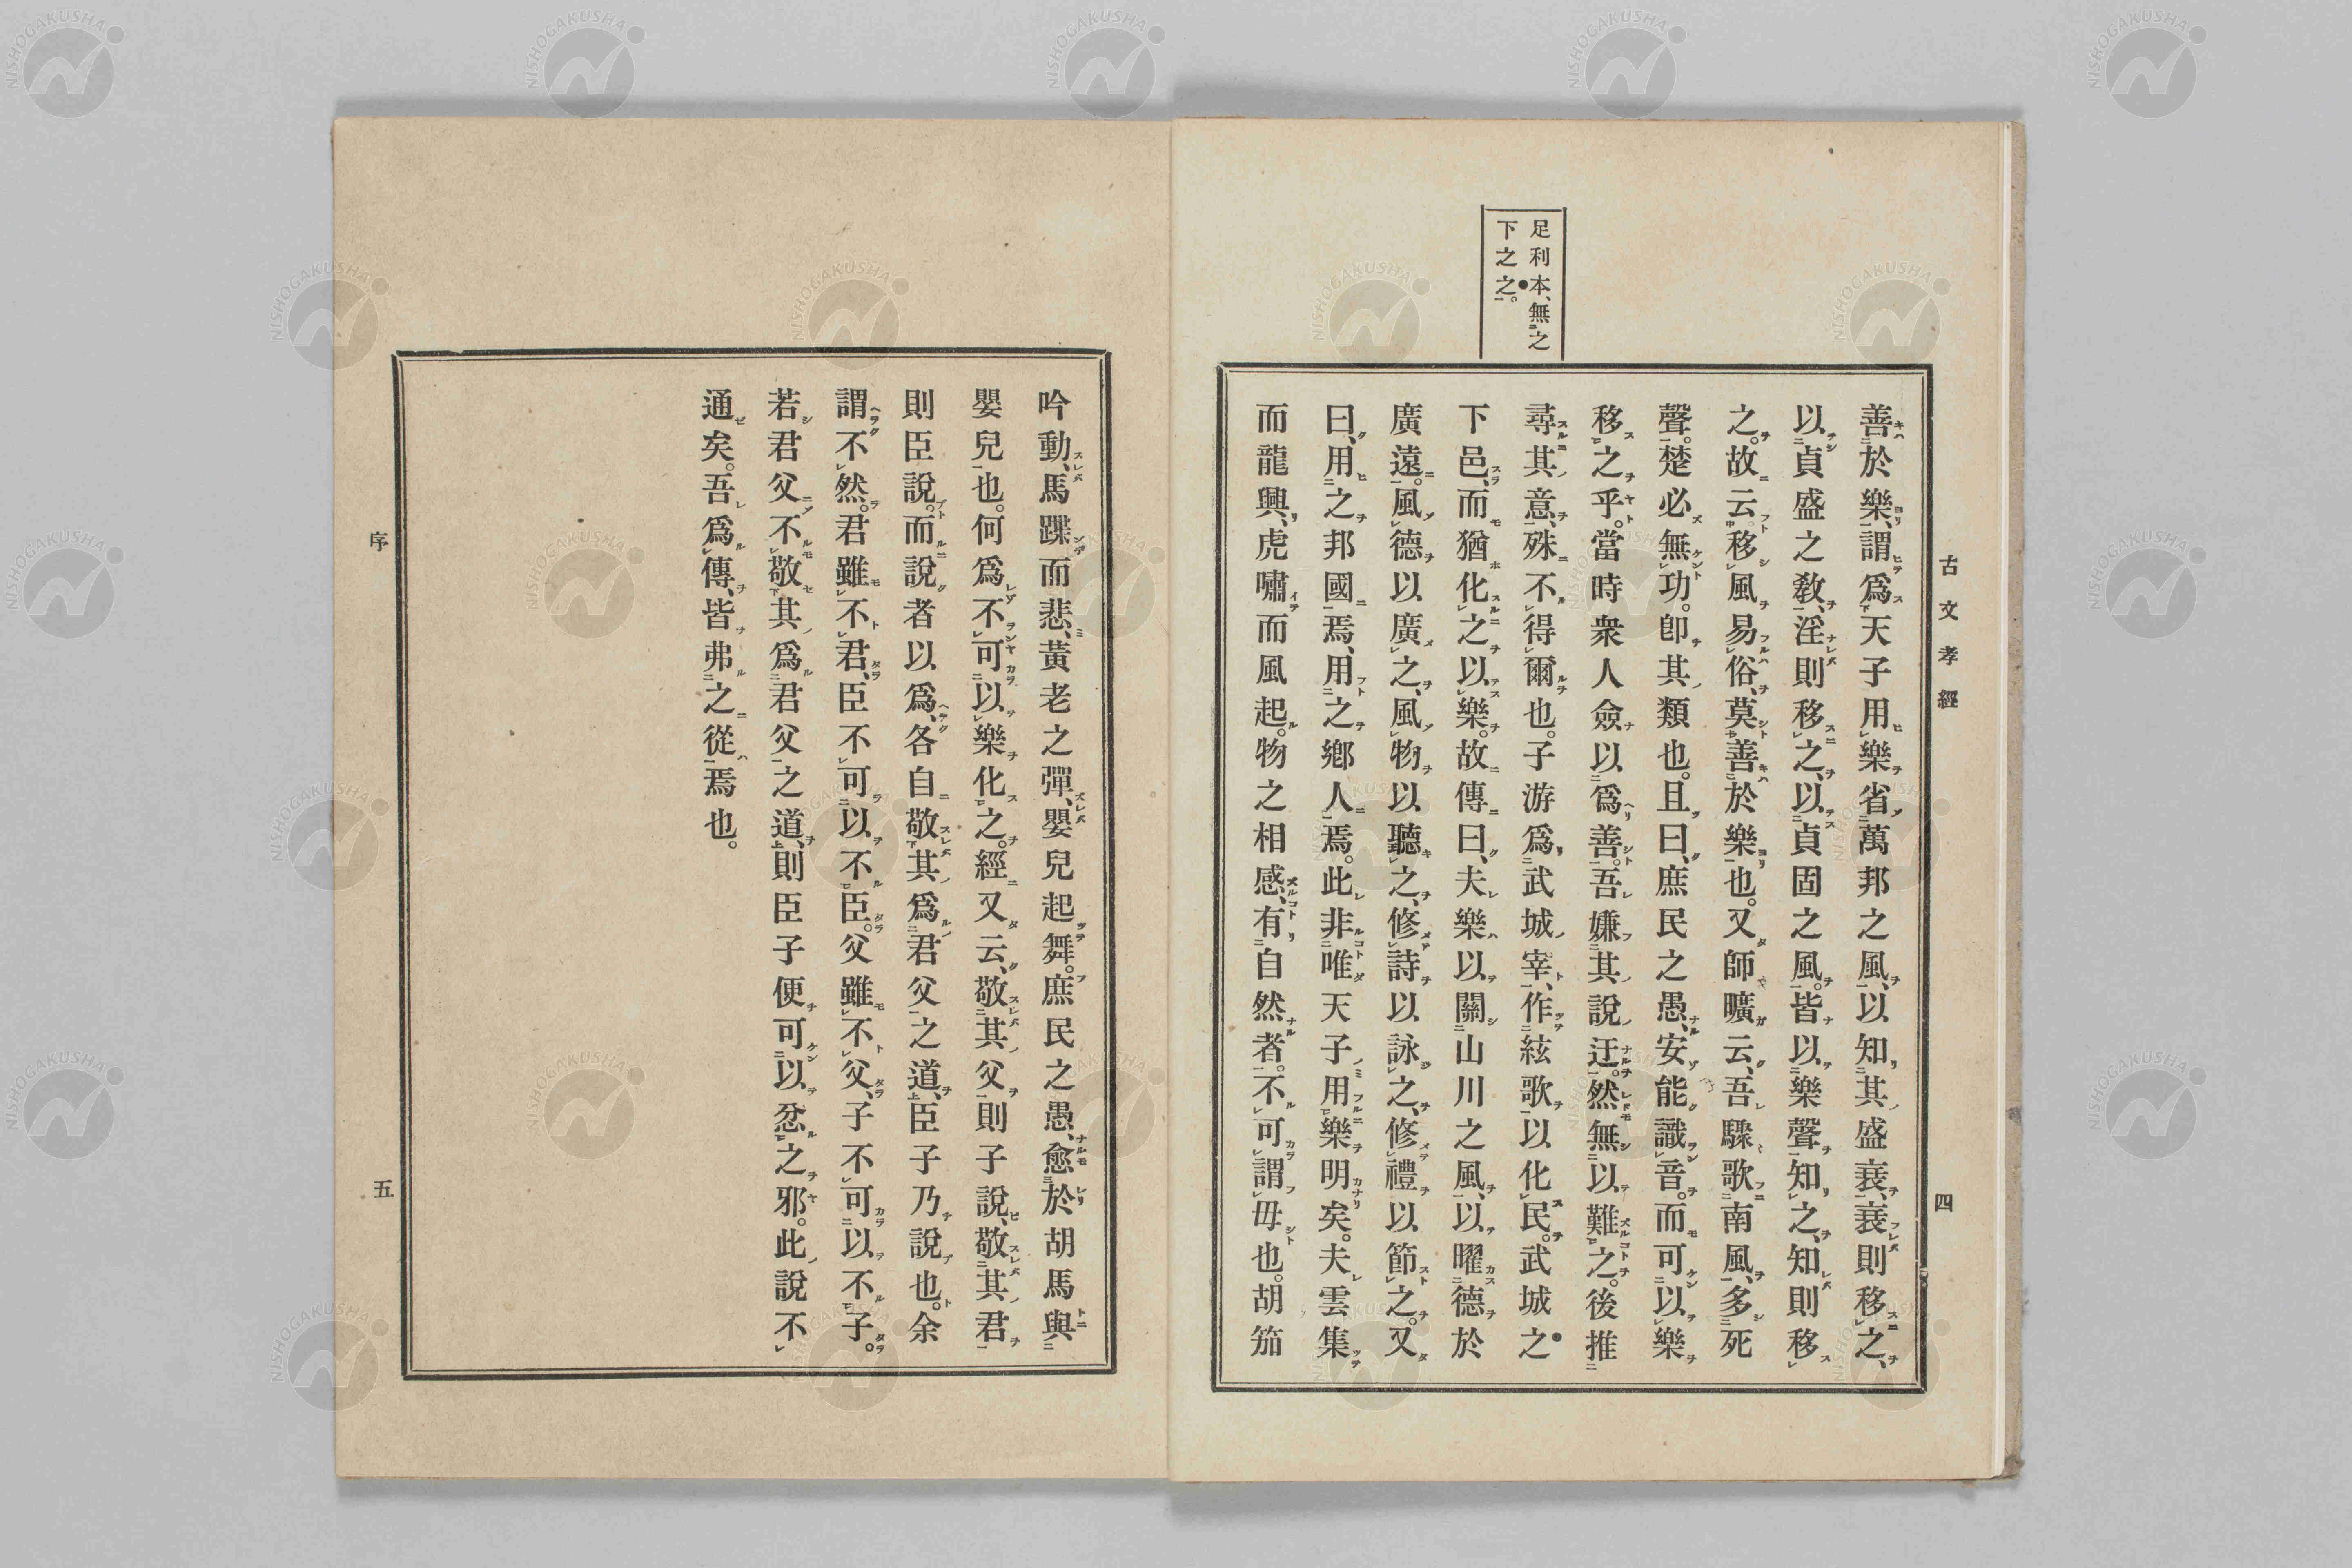 古文孝經
四
足利本、無之
下之之。
善於樂、謂爲天子用樂省萬邦之風、以知其盛衰、衰則移之、
以貞盛之敎、淫則移之、以貞固之風。皆以樂聲知之、知則移
之。故云。移風易俗、莫善於樂也。又師曠云、吾驟歌南風、多死
聲。楚必無功。卽其類也。且曰、庶民之愚、安能識音。而可以樂
移之乎。當時衆人僉以爲善。吾嫌其說迂。然無以難之。後推
尋其意、殊不得爾也。子游爲武城宰、作絃歌以化民。武城之
下邑、而猶化之以樂。故傳曰、夫樂以關山川之風、以曜德於
廣遠。風德以廣之、風物以聽之、修詩以詠之、修禮以節之。又
曰、用之邦國焉、用之鄕人焉。此非唯天子用樂明矣。夫雲集
而龍興、虎嘯而風起。物之相感、有自然者。不可謂毋也。胡笳
吟動、馬蹀而悲、黃老之彈、嬰兒起舞。庶民之愚、愈於胡馬與
嬰兒也。何爲不可以樂化之。經又云、敬其父則子說、敬其君
則臣說。而說者以爲、各自敬其爲君父之道、臣子乃說也。余
謂不然。君雖不君、臣不可以不臣。父雖不父、子不可以不子。
若君父不敬其爲君父之道、則臣子便可以忿之邪。此說不
通矣。吾爲傳、皆弗之從焉也。
序
五
NISHOGAKUSHA